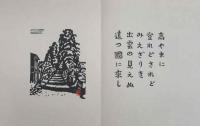 高やまに
登れどされど
みえざりき
出雲の見えぬ
遠つ國に来し